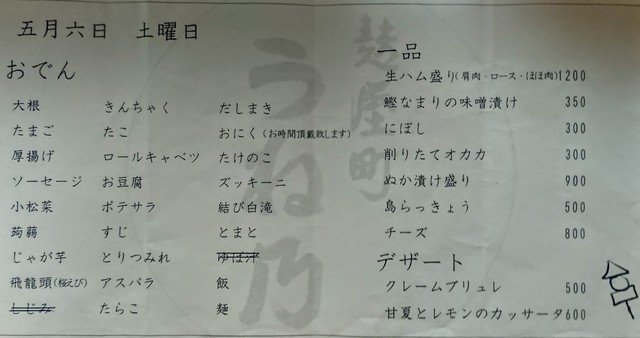 五月六日 土曜日
おでん
大根 きんちゃく だしまき
たまご たこ おにく(お時間頂戴致します)
厚揚げ ロールキャベツ たけのこ
ソーセージ お豆腐 ズッキーニ
小松菜 ポテサラ 結び白滝
蒟蒻 すじ とまと
じゃが芋 とりつみれ ゆば汁
飛龍頭(桜えび) アスパラ 飯
しじみ たらこ 麺
一品
生ハム盛り(肩肉・ロース・ほほ肉) 1200
鰹なまりの味噌漬け 350
にぼし 300
削りたてオカカ 300
ぬか漬け盛り 900
島らっきょう 500
チーズ 800
デザート
クレームブリュレ 500
甘夏とレモンのカッサータ 600
麩屋町
うね乃